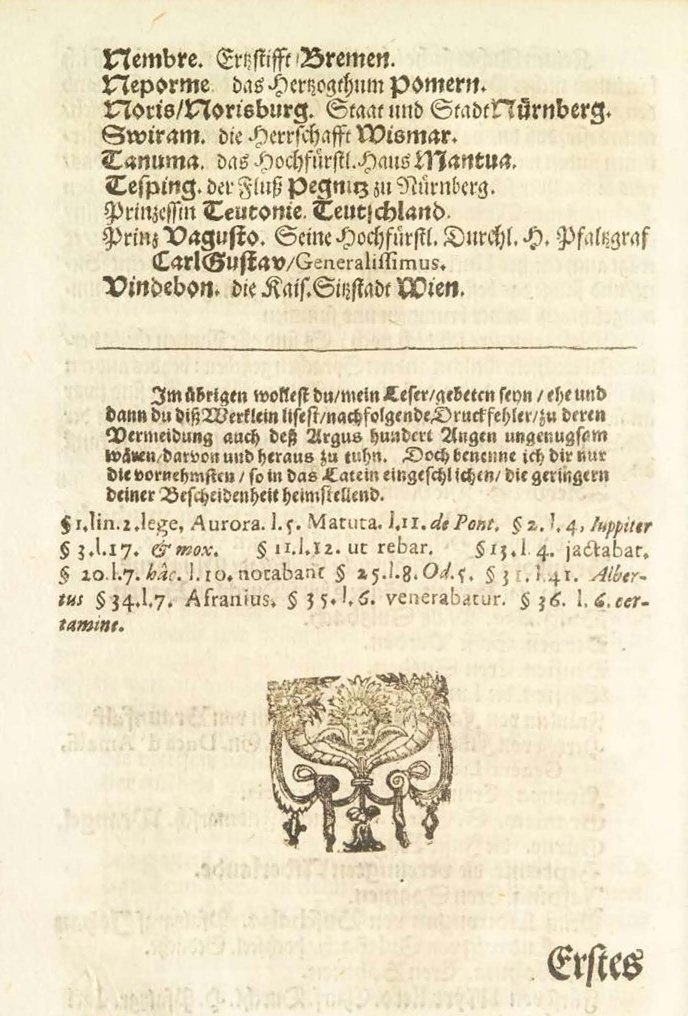 Nembre. Ertzstifft Bremen.
Neporme das Hertzogthum Pomern.
Noris/Norisburg. Staat und Stadt Nürnberg.
Swiram. die Herrschafft Wismar.
Tanuma. das Hochfürstl. Haus Mantua.
Tesping. der Fluß Pegnitz zu Nürnberg.
Prinzessin Teutonie. Teutschland.
Prinz Vagusto. Seine Hochfürstl. Durchl. H. Pfaltzgraf
Carl Gustav/Generalissimus.
Vindebon. die Kais. Sitzstadt Wien.
Im übrigen wollest du/mein Leser/gebeten seyn/ehe und
dann du diß Werklein lisest/nachfolgende Druckfehler/zu deren
Vermeidung auch deß Argus hundert Augen ungenugsam
wären/darvon und heraus zu tuhn. Doch benenne ich dir nur
die vornehmsten/so in das Latein eingeschlichen/die geringern
deiner Bescheidenheit heimstellend.
§ 1. lin. 2. lege, Aurora. l. 5. Matuta. l. 11. de Pont. § 2. l. 4, Iuppiter
§ 3. l. 17. & mox. § 11. l. 12. ut rebar. § 13. l. 4. jactabat.
§ 20. l. 7. hâc. l. 10. notabant § 25. l. 8. Od. 5. § 31. l. 41. Alber-
tus § 34. l. 7. Afranius. § 35. l. 6. venerabatur. § 36. l. 6. cer-
tamine.
Erstes